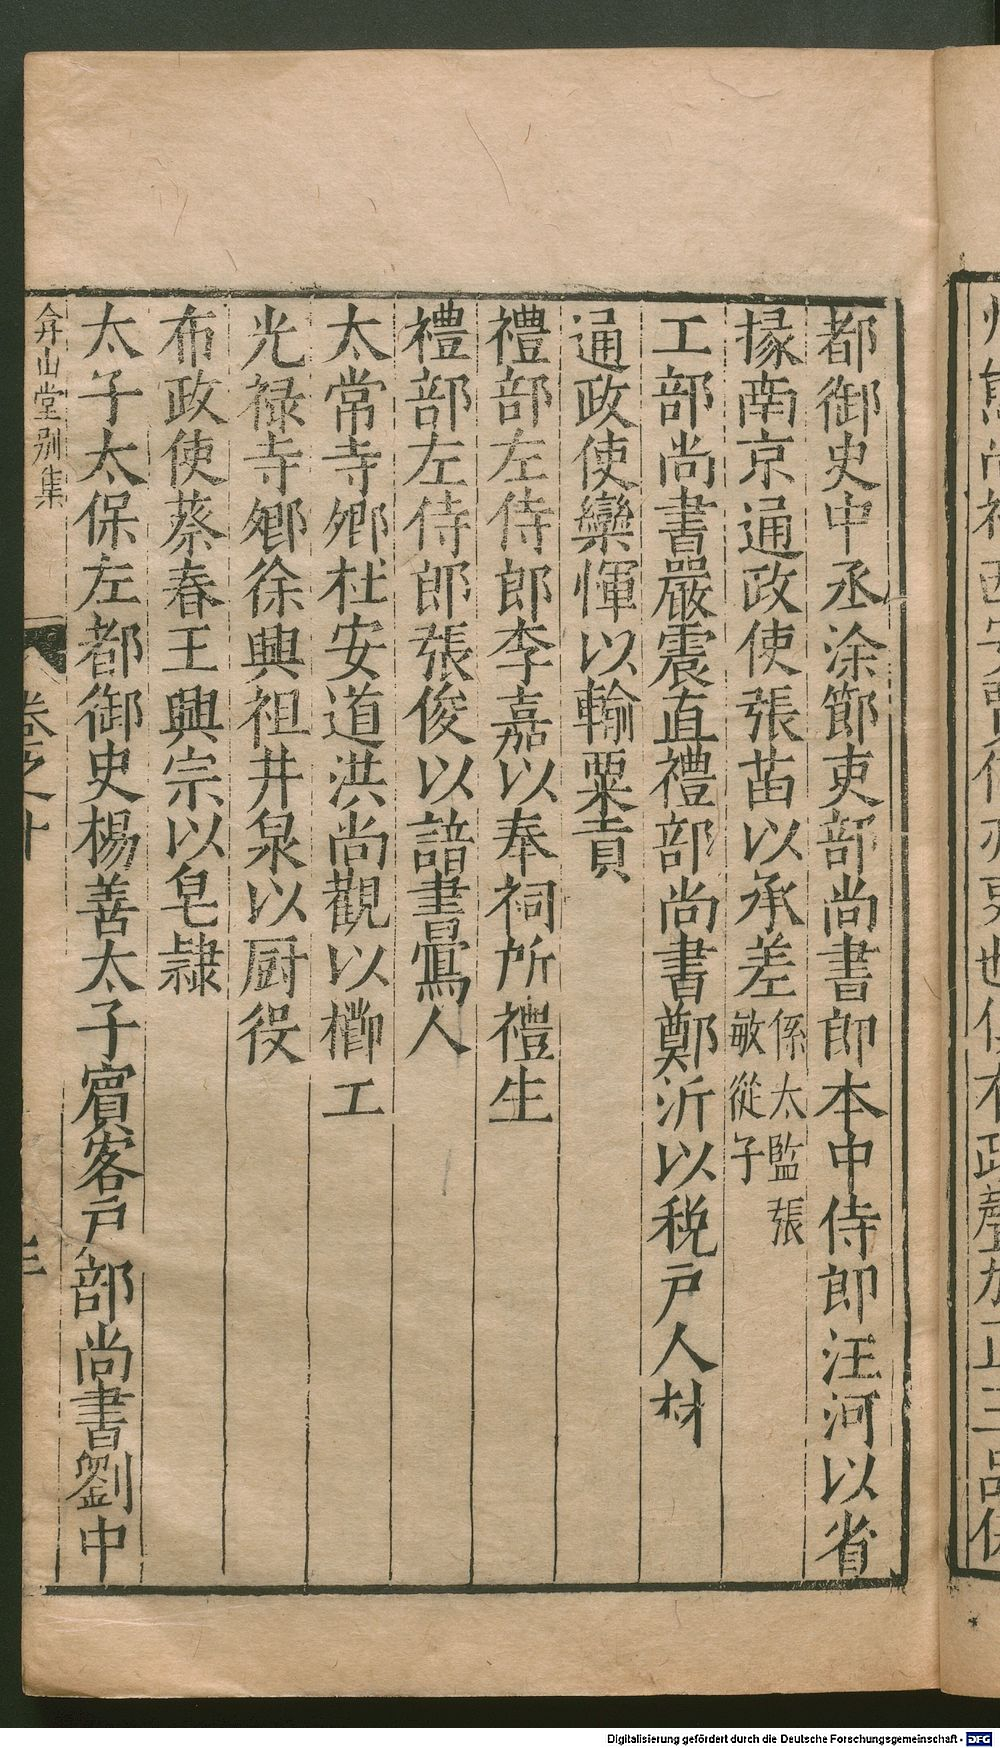 都御史中丞涂節吏部尚書郎本中侍郎汪河以省
掾南京通政使張苗以承差係太監張敏從子
工部尚書嚴震直禮部尚書鄭沂以税戶人材
通政使欒惲以輸粟責
禮部左侍郎李嘉以奉祠所禮生
禮部左侍郎張俊以諳書寫人
太常寺卿杜安道洪尚觀以櫛工
光禄寺卿徐興祖井泉以厨役
布政使蔡春王興宗以皂隷
太子太保左都御史楊善太子賓客戶部尚書劉中
弇山堂別集
卷之十
三
Digitalisierung gefördert durch die Deutsche Forschungsgemeinschaft - DFG